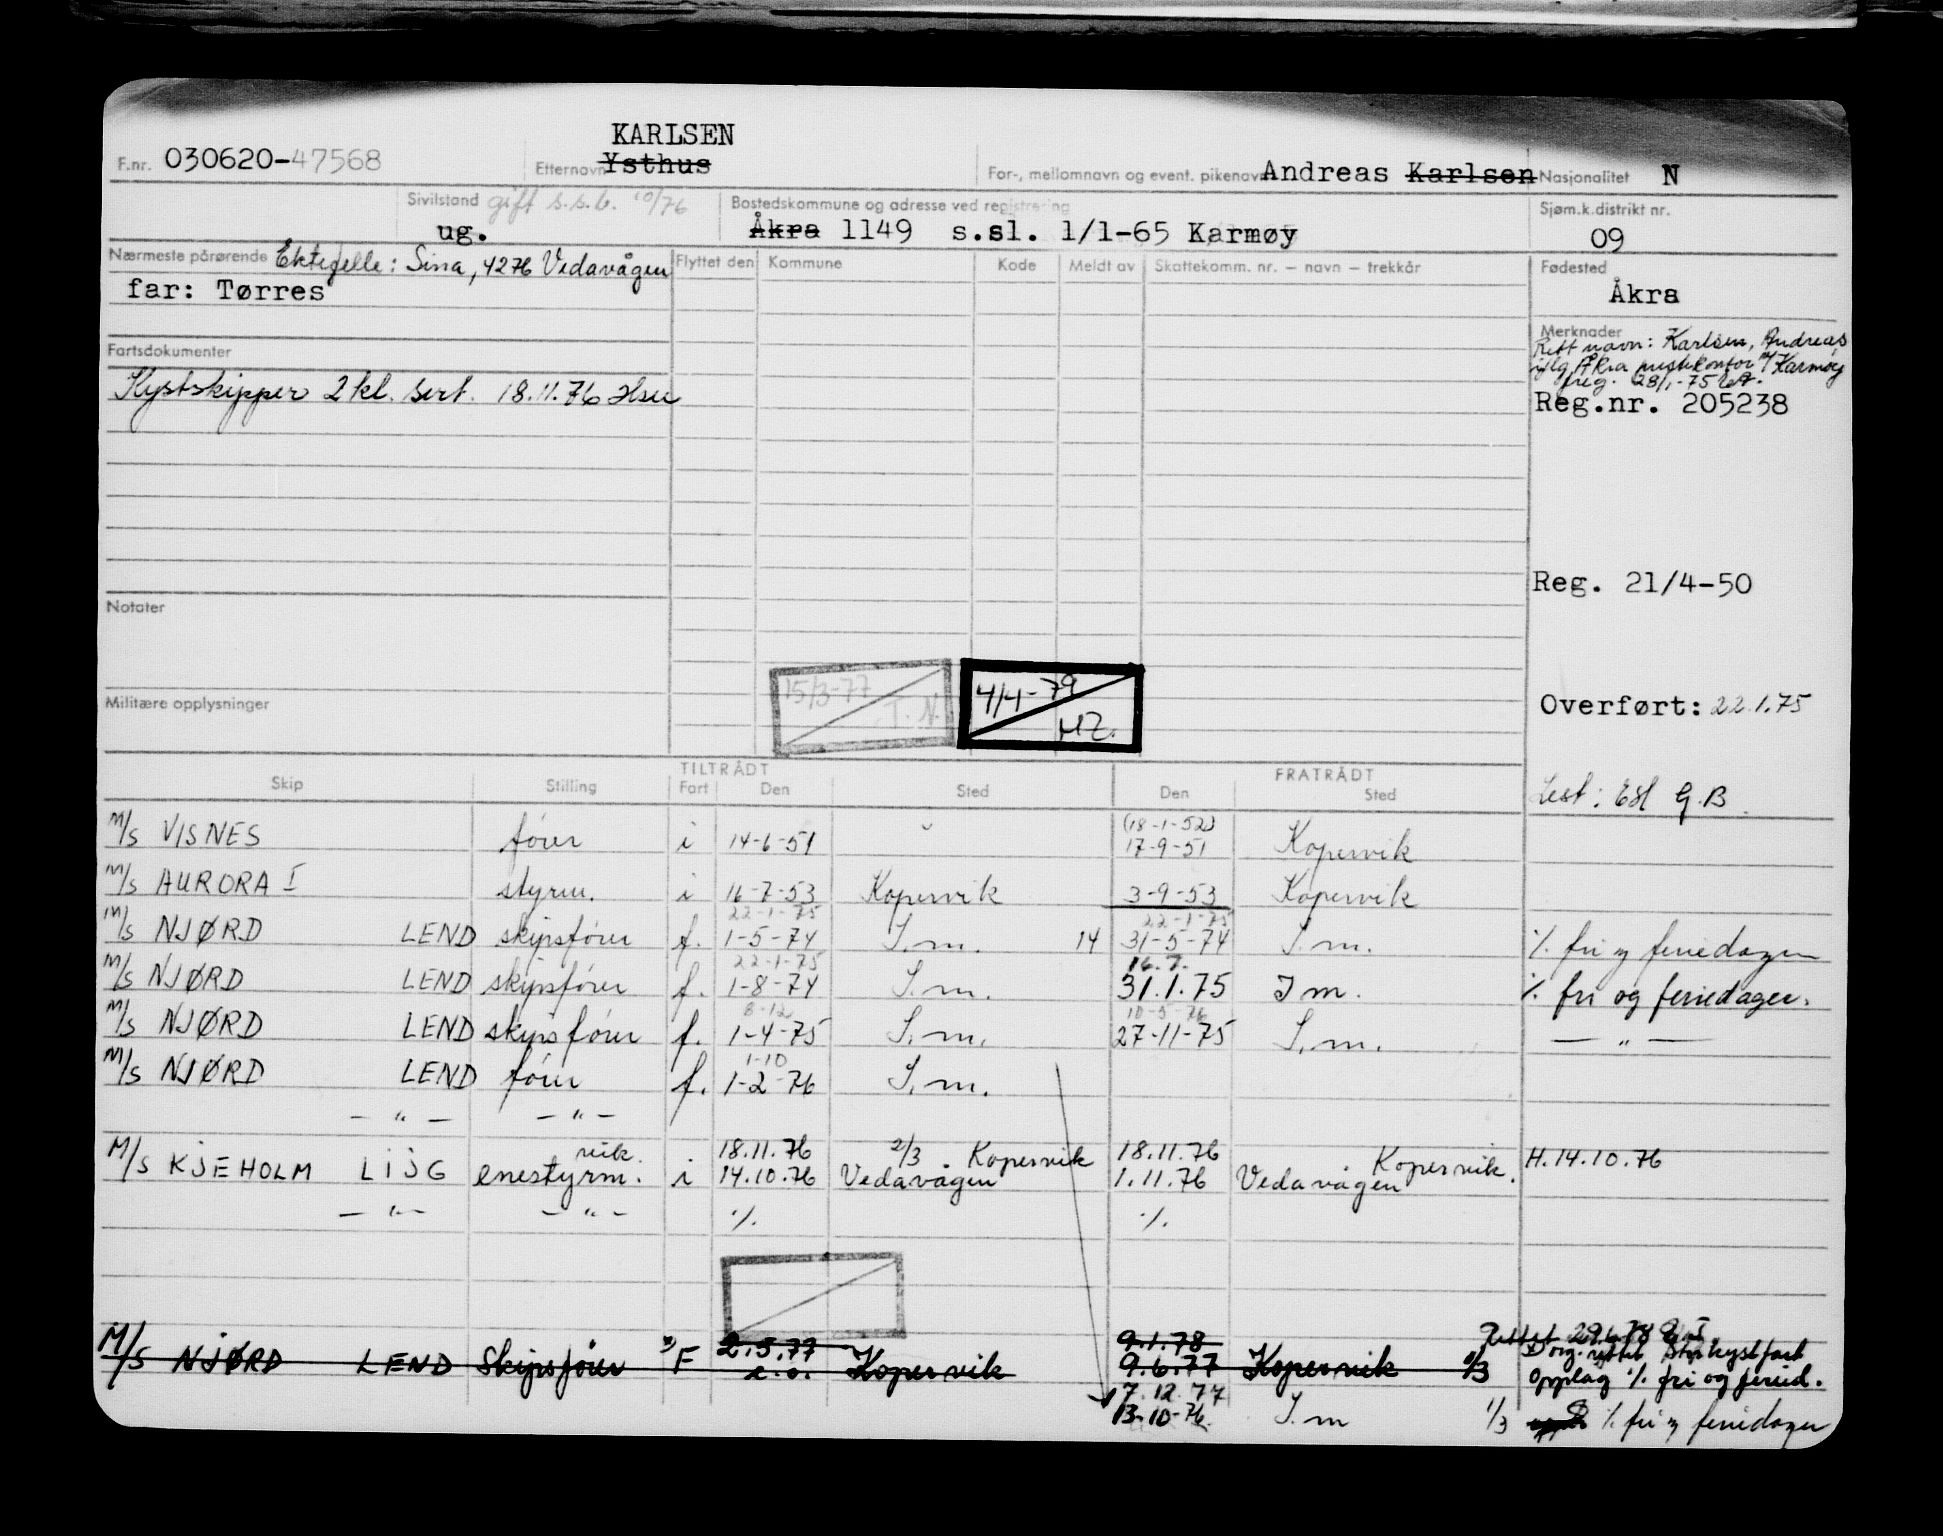 KARLSEN
F.nr. 030620-47568 Etternavn Ysthus For-, mellomnavn og event. pikenavn Andreas Karlsen Nasjonalitet N
Sivilstand gift s.s.b. 10/76 Bostedskommune og adresse ved registrering Sjøm.k.distrikt nr.
ug. Åkra 1149 s.sl. 1/1-65 Karmøy 09
Nærmeste pårørende Ektefelle: Sina, 4276 Vedavågen Flyttet den Kommune Kode Meldt av Skattekomm. nr. – navn – trekkår Fødested
far: Tørres Åkra
Merknader
Rett navn: Karlsen, Andreas
Åkra Karmøy
Fartsdokumenter
28/1-75
Kystskipper 2 kl. sert. 18.11.76
Reg.nr. 205238
Reg. 21/4-50
Notater
15/3-77 T.N. 4/4-79
Militære opplysninger
Overført: 22.1.75
TILTRÅDT FRATRÅDT
Skip Stilling Fart Den Sted Den Sted
Lest: G.B.
(18-1-52)
M/S VISNES fører i 14-6-51 17-9-51 Kopervik
M/S AURORA I styrm. i 16-7-53 Kopervik 3-9-53 Kopervik
22-1-75 22-1-75
M/S NJØRD LEND skipsfører f. 1-5-74 S.m. 14 31-5-74 S.m. ./. fri og feriedager
22-1-75 16.7.
M/S NJØRD LEND skipsfører f. 1-8-74 S.m. 31.1.75 S m. ./. fri og feriedager.
8-12 10-5-76
M/S NJØRD LEND skipsfører f. 1-4-75 S.m. 27-11-75 S.m. — " —
1-10
M/S NJØRD LEND fører f. 1-2-76 S.m.
— " — — " —
vik. 18.11.76 2/3 Kopervik 18.11.76 Kopervik.
M/S KJEHOLM LIJG enestyrm. i 14.10.76 Vedavågen 1.11.76 Vedavågen H.14.10.76
— " — — " — ./. ./.
2.5.77 9.1.78 Rettet 29.6.78
M/S NJØRD LEND Skipsfører F i.o. Kopervik 9.6.77 Kopervik
opplag ./. fri og feried.
7.12.77
13-10-76 S.m 1/3 ./. fri og feriedager